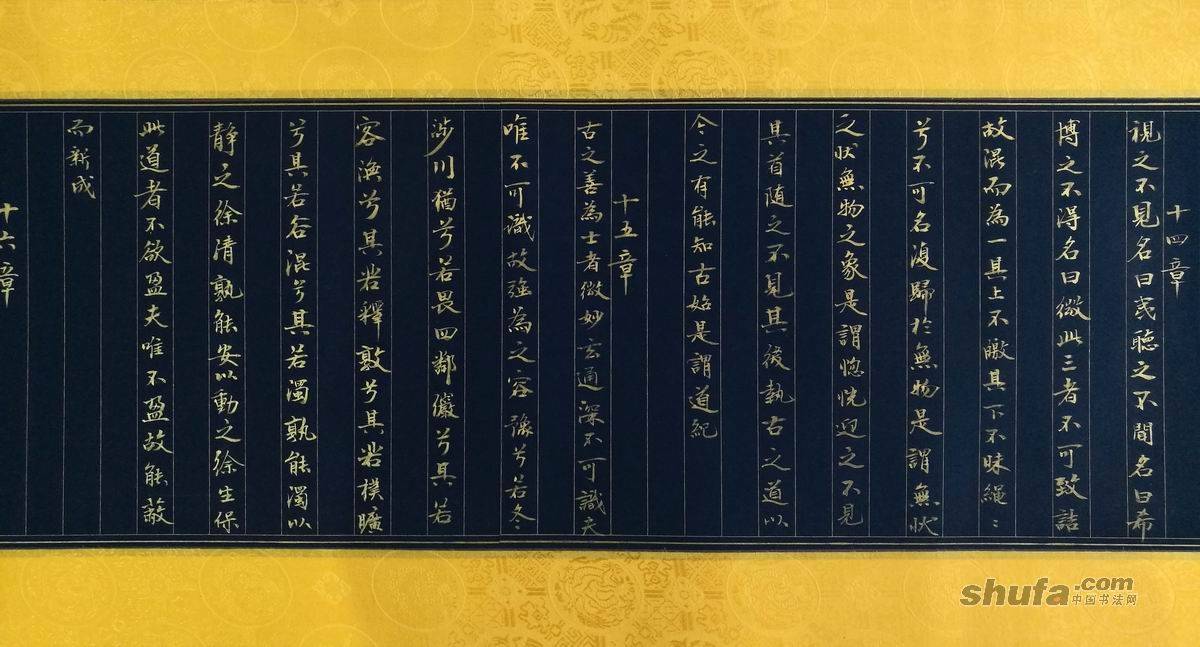 十四章
視之不見名曰夷聽之不聞名曰希
博之不得名曰微此三者不可致詰
故混而為一其上不皦其下不昧繩〻
兮不可名復歸於無物是謂無狀
之狀無物之象是謂惚恍迎之不見
其首随之不見其後執古之道以
今之有能知古始是謂道紀
十五章
古之善為士者微妙玄通深不可識夫
唯不可識故強為之容豫兮若冬
涉川猶兮若畏四鄰儼兮其若
容渙兮其若釋敦兮其若樸曠
兮其若谷混兮其若濁孰能濁以
静之徐清孰能安以動之徐生保
此道者不欲盈夫唯不盈故能蔽
而新成
十六章
shufa.com
中国书法网